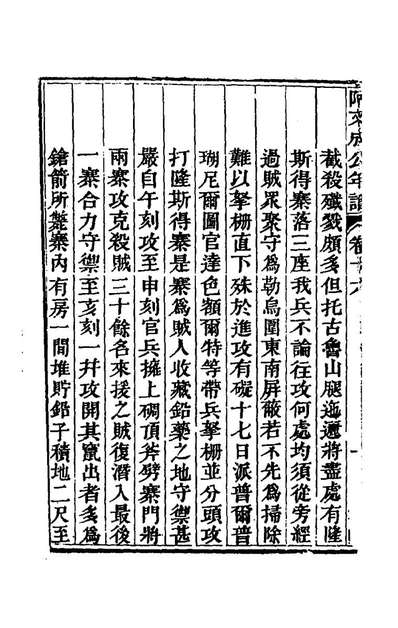 阿文成公年譜 卷十八
截殺殲戮頗多但托古魯山腿迤邐將盡處有隆
斯得寨落三座我兵不論往攻何處均須從旁經
過賊眾聚守為勒烏圍東南屏蔽若不先為掃除
難以拏柵直下殊於進攻有礙十七日派普爾普
瑚尼爾圖官達色額爾特等帶兵拏柵並分頭攻
打隆斯得寨是寨為賊人收藏鉛藥之地守禦甚
嚴自午刻攻至申刻官兵擁上碉頂斧劈寨門將
兩寨攻克殺賊三十餘各來援之賊復潛入最後
一寨合力守禦至亥刻一并攻開其竄出者多為
鎗箭所斃寨內有房一間堆貯鉛子積地二尺至